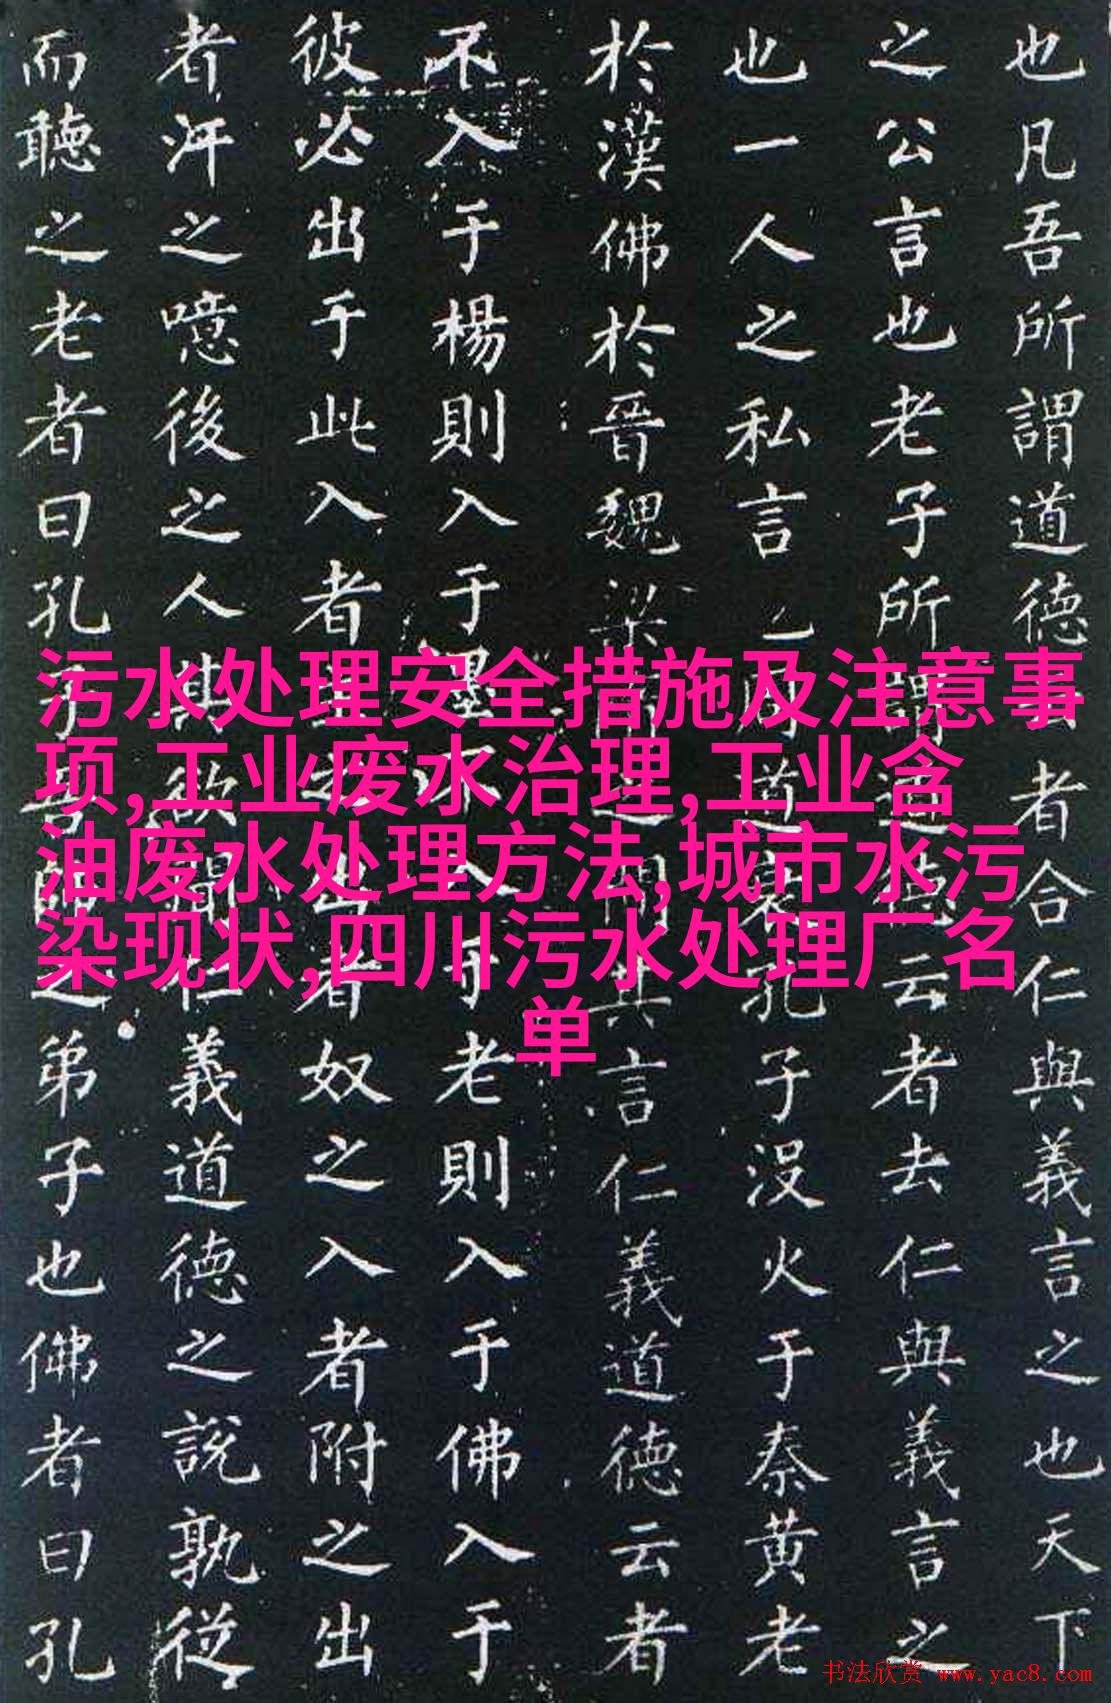 也凡吾所謂道德云者合仁與義言之也天下
之公言也老子所謂道德云者去仁與義言之
也一人之私言也周道衰孔子没火于秦黄老
於漢佛於晉魏梁隋之間其言仁義道德云者
不入于楊則入于墨不入于老則入于佛入于
彼必出于此入者主之出者奴之入者附之出
者汙之噫後之人其欲聞仁義道德之説孰從
而聽之老者曰孔子吾師之弟子也佛者曰孔
污水处理安全措施及注意事
项,工业废水治理,工业含
油废水处理方法,城市水污
染现状,四川污水处理厂名
单
书法欣赏 www.yac8.com